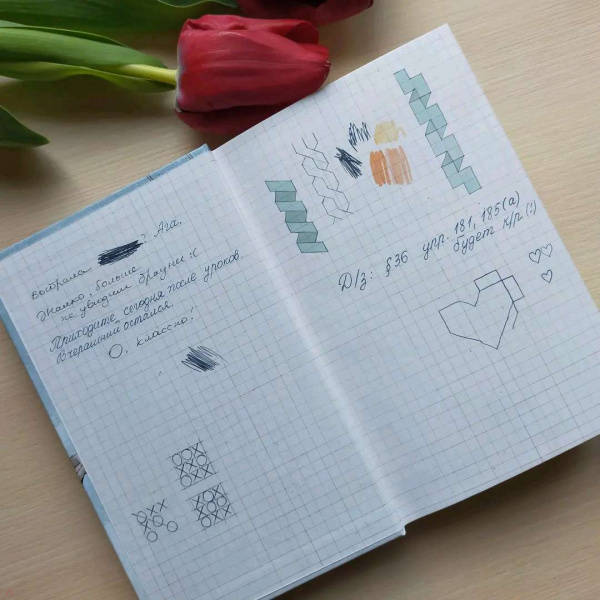 выбрала ? Ага.
Жалко, больше
не увидим брауни :(
Приходите сегодня после уроков.
Вчерашний остался.
О, классно!
Д/з: §36 упр. 181, 185(а)
будет к/р (!)